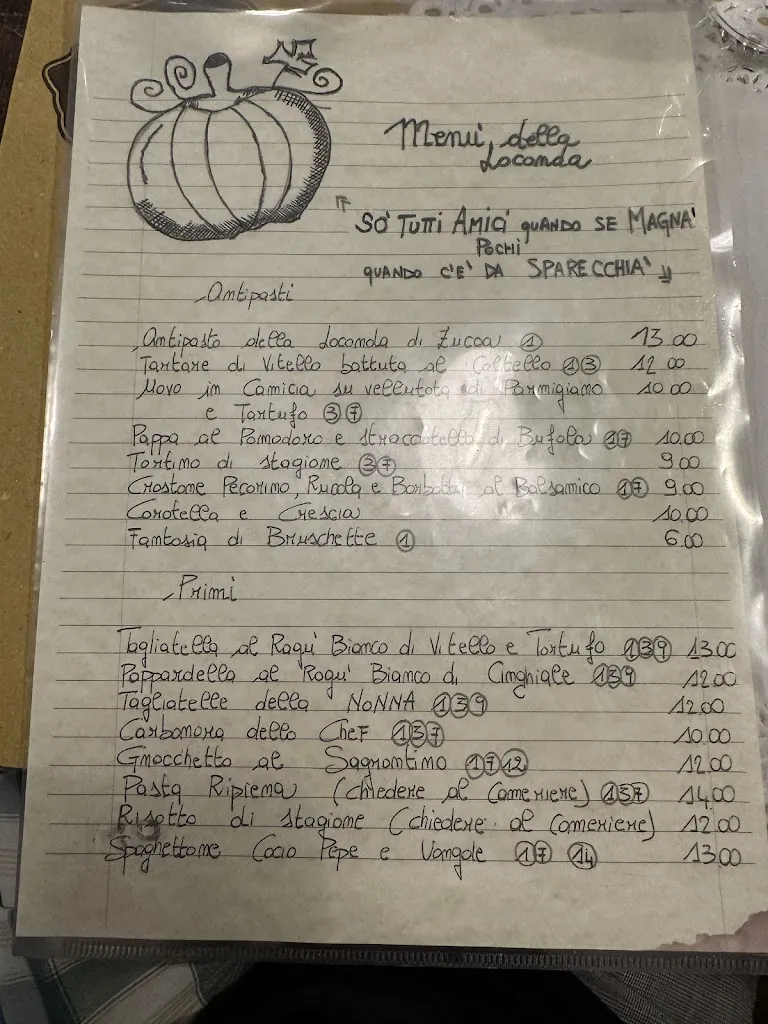 Menù della
Locanda
SO' TUTTI AMICI QUANDO SE MAGNA'
POCHI
QUANDO C'E' DA SPARECCHIA'
Antipasti
Antipasto della Locanda di Zucca 1 13.00
Tartare di Vitello battuta al Coltello 1 3 12.00
Uovo in Camicia su vellutata di Parmigiano 10.00
e Tartufo 3 7
Pappa al Pomodoro e stracciatella di Bufala 1 7 10.00
Tortino di stagione 3 7 9.00
Crostone Pecorino, Rucola e Barbotta al Balsamico 1 7 9.00
Coratella e Crescia 10.00
Fantasia di Bruschette 1 6.00
Primi
Tagliatella al Ragu' Bianco di Vitello e Tartufo 1 3 9 13.00
Pappardella al Ragu' Bianco di Cinghiale 1 3 9 12.00
Tagliatelle della NONNA 1 3 9 12.00
Carbonara dello CheF 1 3 7 10.00
Gnocchetto al Sagrantino 1 7 12 12.00
Pasta Ripiena (chiedere al Cameriere) 1 3 7 14.00
Risotto di stagione (chiedere al Cameriere) 12.00
Spaghettone Cacio Pepe e Vongole 1 7 14 13.00